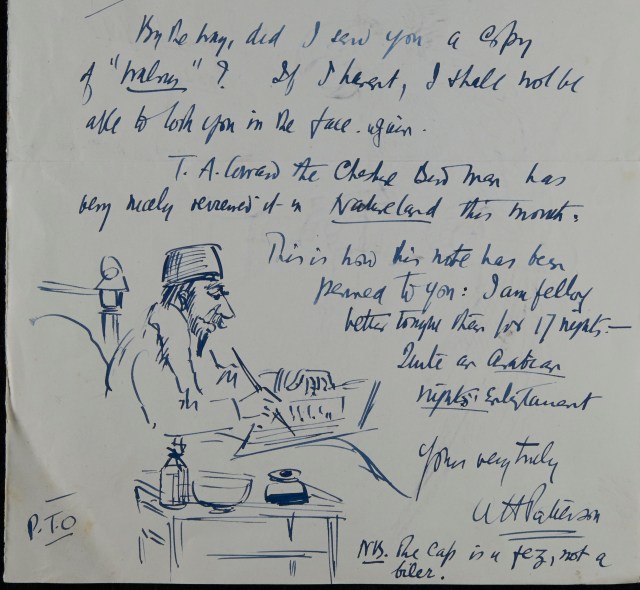 By the way, did I send you a copy
of "Walrus"? If I havent, I shall not be
able to look you in the face again.
T. A. Coward the Cheshire Bird Man has
very nicely reviewed it in Natureland this month.
This is how this note has been
penned to you: I am feeling
better tonight than for 17 nights —
Quite an Arabian
nights' Entertainment
Yours very truly
A H Patterson
P.T.O
NB. The Cap is a fez, not a